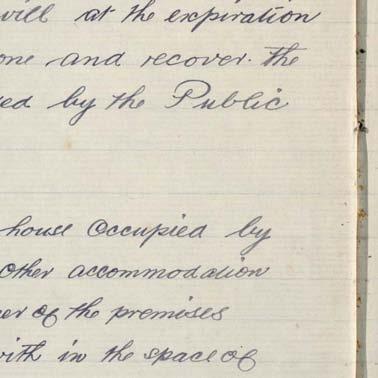 will at the expiration
one and recover. the
ed by the Public
house Occupied by
other accommodation
er of the premises
with in the space of